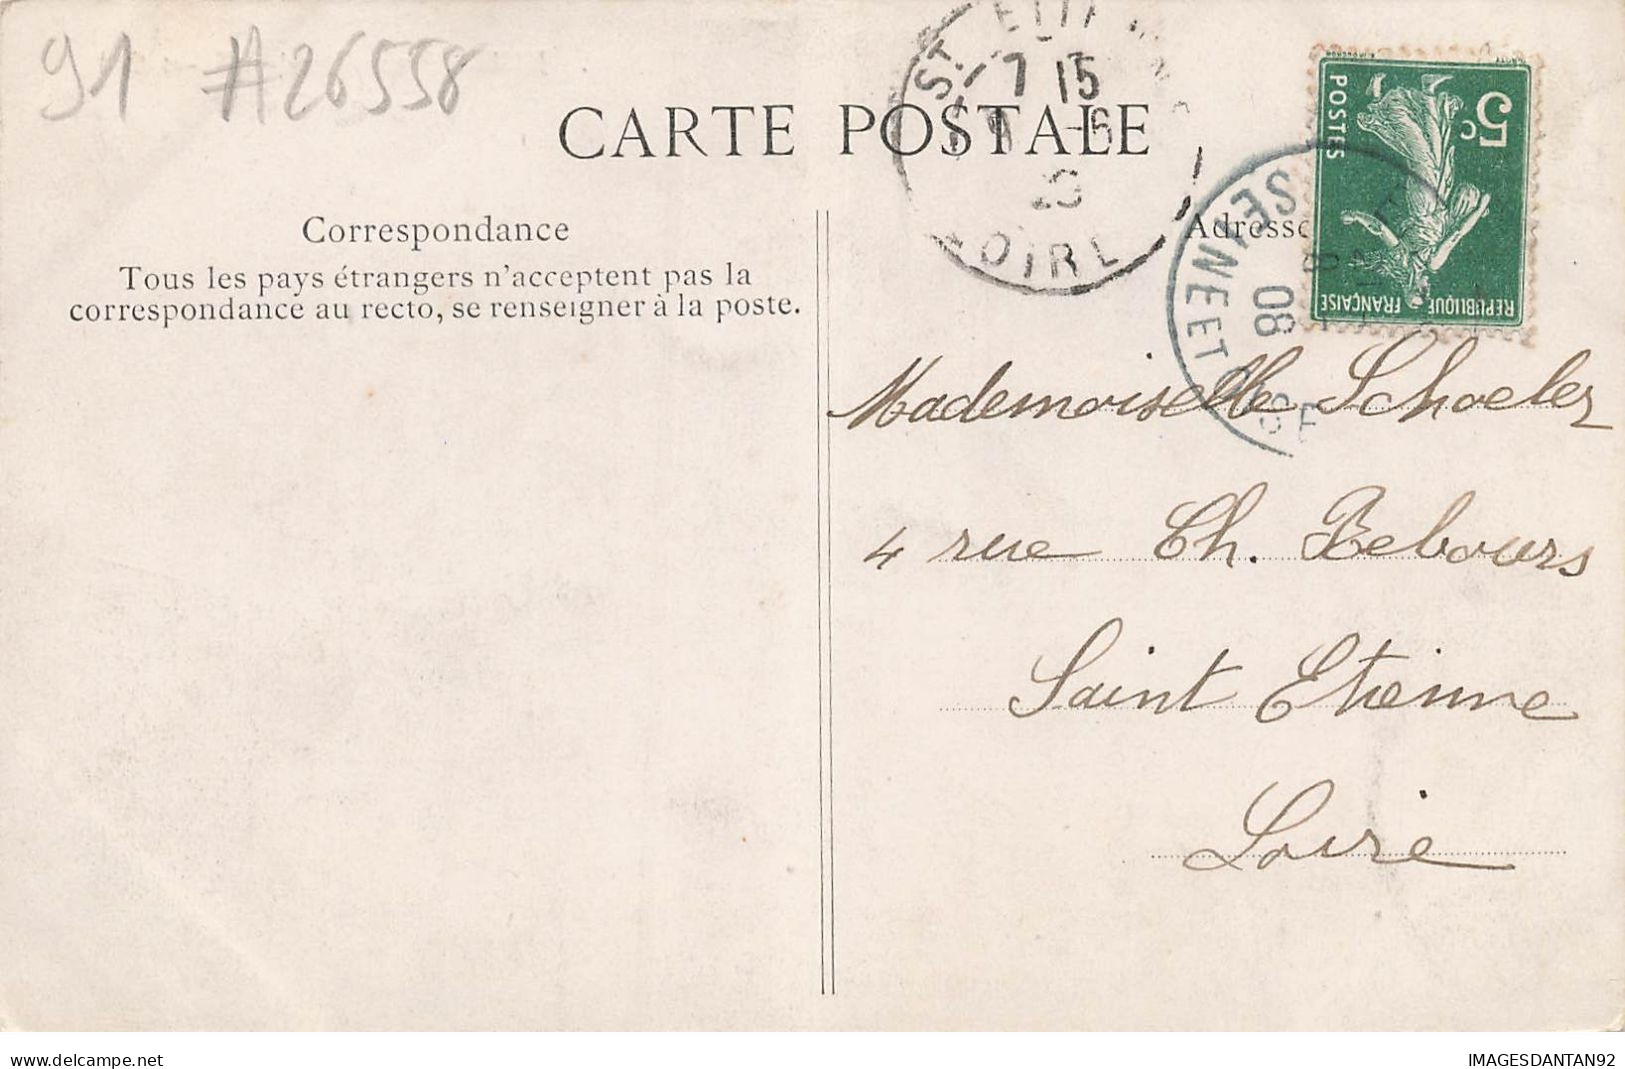 91 #26558
CARTE POSTALE
ST ETIENNE
7 15
LOIRE
5c
POSTES
REPUBLIQUE FRANÇAISE
SEINE ET OISE
08
Correspondance
Tous les pays étrangers n'acceptent pas la
correspondance au recto, se renseigner à la poste.
Adresse
Mademoiselle Schoeler
4 rue Ch. Rebours
Saint Etienne
Loire
www.delcampe.net
IMAGESDANTAN92